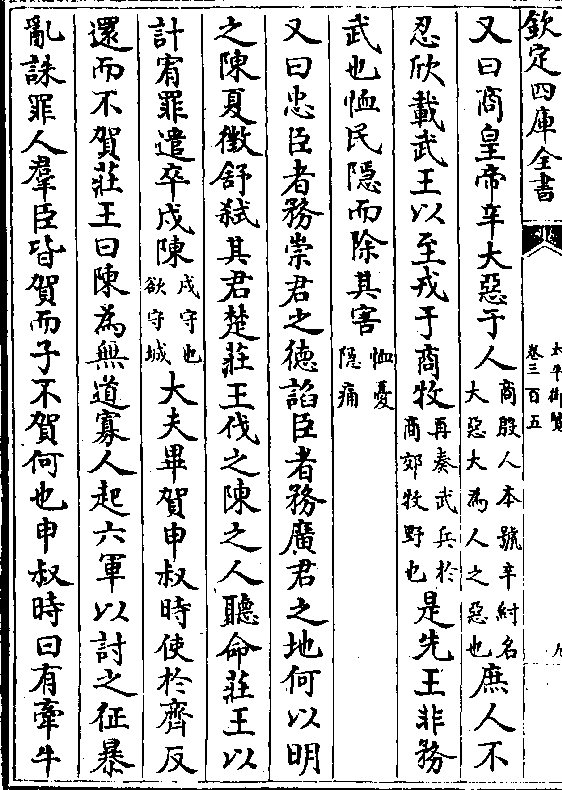 欽定四庫全書
太平御覽
卷三百五
九
又曰商皇帝辛大惡于人商殷人本號辛紂名大惡大為人之惡也庶人不
忍欣載武王以至戎于商牧再奏武兵於商郊牧野也是先王非務
武也恤民隱而除其害恤憂隱痛
又曰忠臣者務崇君之德謟臣者務廣君之地何以明
之陳夏徵舒弑其君楚莊王伐之陳之人聽命莊王以
計宥罪遣卒戍陳戍守也欲守城大夫畢賀申叔時使於齊反
還而不賀莊王曰陳為無道寡人起六軍以討之征暴
亂誅罪人羣臣皆賀而子不賀何也申叔時曰有牽牛